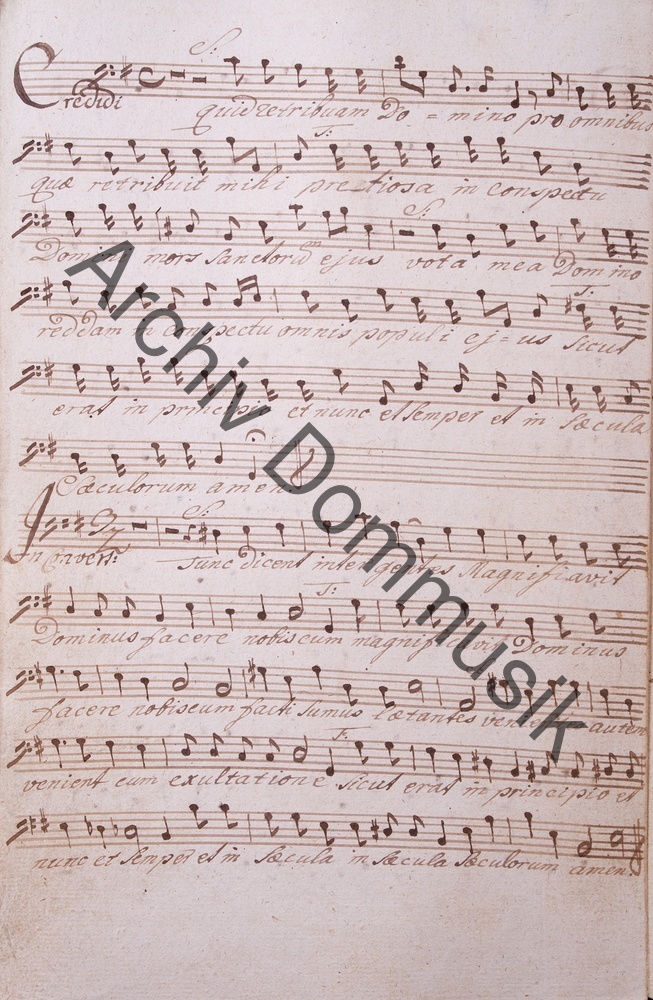 S:
Credidi quid retribuam Do = mino pro omnibus
T:
quæ retribuit mihi pretiosa in conspectu
S:
Domini mors Sanctorum ejus vota mea Domino
T:
reddam in conspectu omnis populi ej = us Sicut
erat in principio et nunc et Semper et in Sæcula
Sæculorum amen.
S:
In convert: Tunc dicent inter gentes Magnificavit
T:
Dominus facere nobiscum magnificavit Dominus
facere nobiscum facti Sumus lætantes venientes autem
T:
venient cum exultatione Sicut erat in principio et
nunc et Semper et in Sæcula in Sæcula Sæculorum amen.
Archiv Dommusik